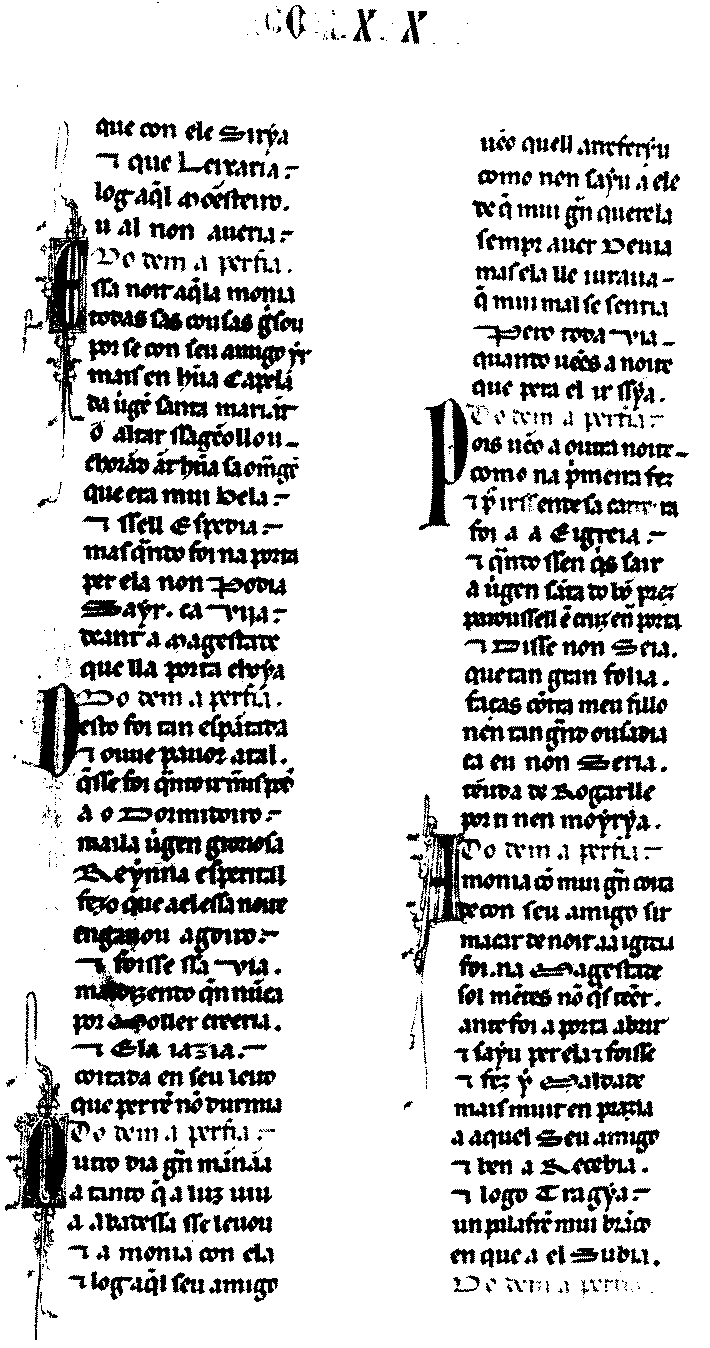 CC L X X
que con ele Sirỳa
⁊ que Leixaria :-
log aq̃l moesteiro.
u al non aueria :-
Do dem a perfia.
Essa noit aq̃la monia
todas sas cousas g̃sou
por se con seu amigo ỳr
mais en hũa Capela
da uigẽ santa maria
o altar ssageollou-
chorãdo
que era mui bela :-
⁊ ssell Espedia :-
mas q̃nto foi na porta
per ela non Podia
Sayr. ca uija :-
deant a Magestade
que lla porta choỳa
Do dem a perfia.
Desto foi tan espãtada
⁊ ouue pauor atal.
q̃sse foi q̃nto
a o Dormitoiro :-
mas la uigen groriosa
Reynna esperital
fezo que aelessa noite
enganou agoiro :-
⁊ foisse ssa uia.
q̃n nũca
por a Soller creeria.
⁊ Ela iazia :-
coitada en seu leito
que per rẽ nõ durmia
Do dem a perfia :-
Outro dia g̃n mãnãa
a tanto q̃ a luz uiu
a abadessa sse leuou
⁊ a monia con ela
⁊ log aq̃l seu amigo
uẽo quell ante ferỳu
como non saỳu a ele
de q̃ mui g̃n querela
sempr auer Deuia
mas ela lle iuraua-
q̃ mui mal se sentia
Pero toda uia-
quando uẽes a noite
que pera el ir ssỳa.
Do dem a perfia :-
Pois uẽo a outra noite-
como na p̃meira fez
foi a A Eigreia :-
⁊ q̃nto ssen q̃s sair
a uigen sãta do bõ prez
parousselle ẽ cruz en porta
⁊ Disse non Seia.
que tan gran folia.
facas cõtra meu fillo
nen tan g̃nd ousadia
ca eu non Seria.
tẽuda de Rogarlle
por ti nen moỳrỳa.
Do dem a perfia :-
A monia cõ mui g̃n coita
de con seu amigo sir
macar de noit aa igreia
foi. na Magestade
sol mẽtes nõ q̃s teer.
ante foi a porta abrir
⁊ saỳu per ela ⁊ foisse
⁊ fez ỳ Maldade
mais muit en prazia
a aquel Seu amigo
⁊ ben a Recebia.
⁊ logo Tragỳa :-
un palafrẽ mui brãco
en que a el Subia.
Do dem a perfia.